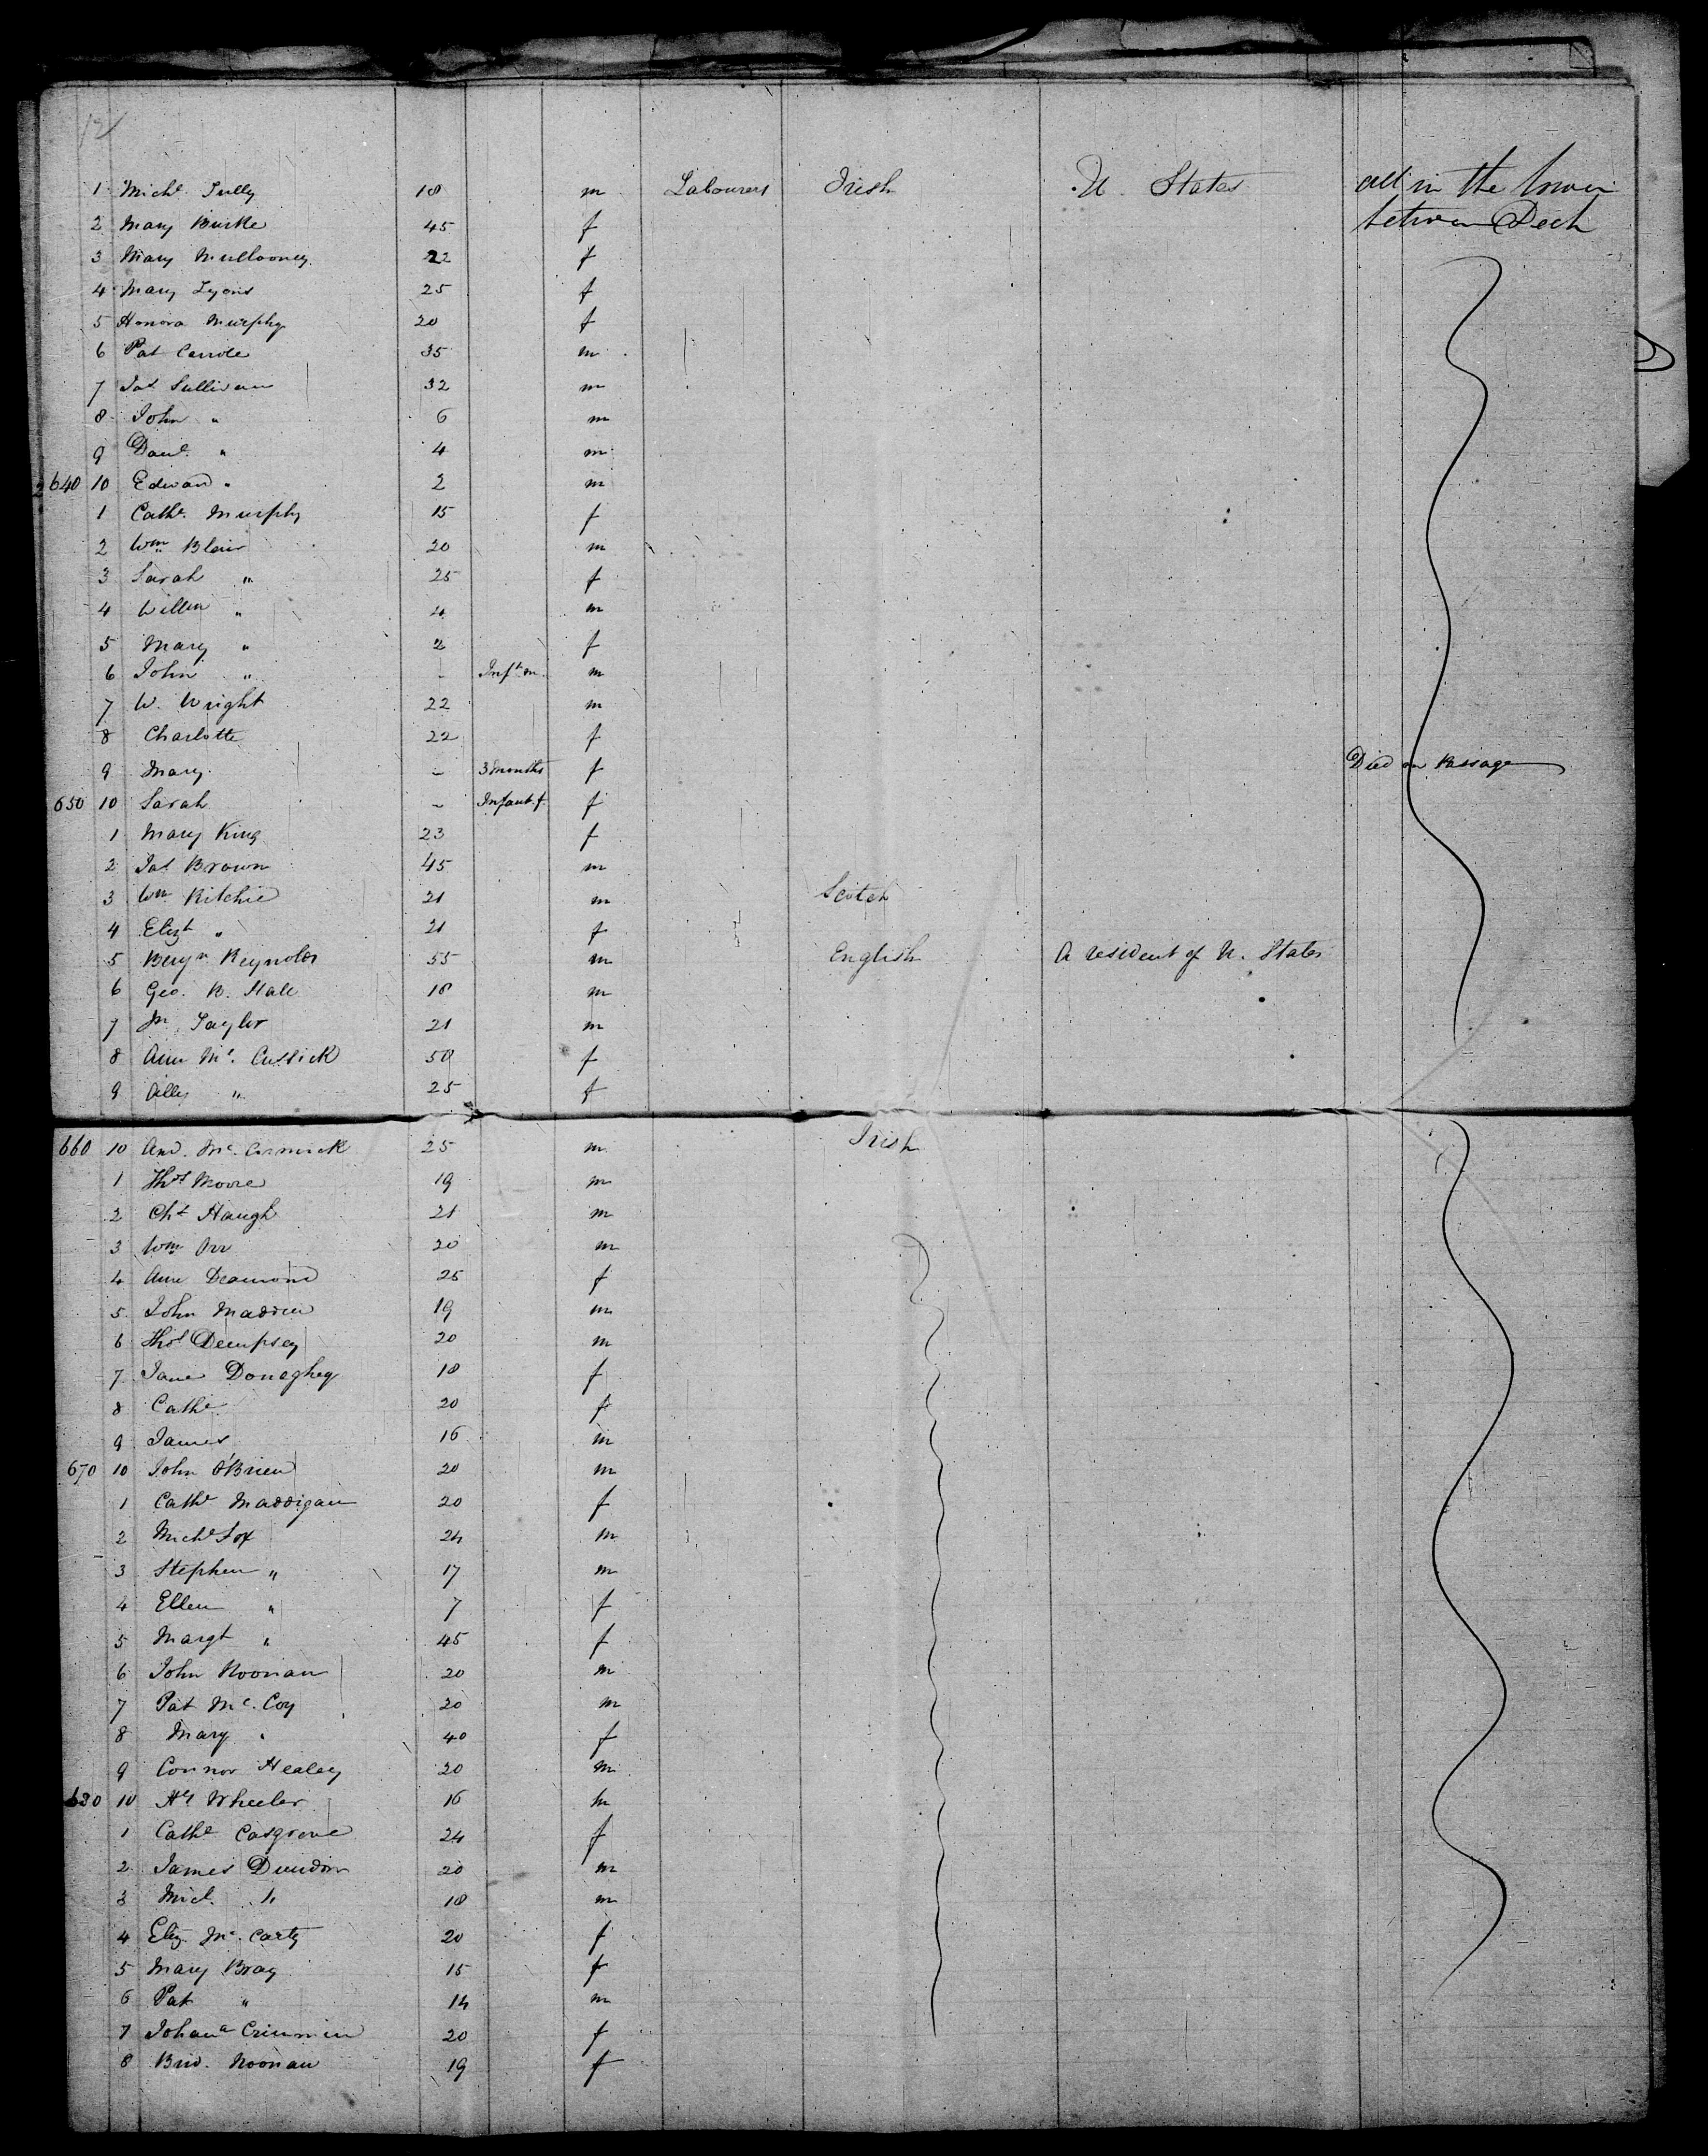 12
1 Michl Tully 18 m Labourers Irish U States all in the lower
2 Mary Burke 45 f between Deck
3 Mary Mullooney 22 f
4 Mary Lyons 25 f
5 Honora Murphy 20 f
6 Pat Carrole 35 m
7 Jas Sullivan 32 m
8 John " 6 m
9 Danl " 4 m
640 10 Edward " 2 m
1 Cathe Murphy 15 f
2 Wm Blair 20 m
3 Sarah " 25 f
4 Willm " 4 m
5 Mary " 2 f
6 John " - Inft m m
7 W. Wright 22 m
8 Charlotte 22 f
9 Mary - 3 months f Died on Passage
650 10 Sarah - Infant f f
1 Mary King 23 f
2 Jas Brown 45 m
3 Wm Ritchie 21 m Scotch
4 Elizt " 21 f
5 Benjn Reynolds 55 m English A resident of U. States
6 Geo. B. Hale 18 m
7 Jn Taylor 21 m
8 Ann Mc. Cussick 50 f
9 Ally " 25 f
660 10 And. Mc. Cormick 25 m Irish
1 Thos Moore 19 m
2 Chs Haugh 21 m
3 Wm Orr 20 m
4 Ann Deamond 25 f
5 John Madden 19 m
6 Thos Dempsey 20 m
7 Jane Doneghey 18 f
8 Cathe 20 f
9 James 16 m
670 10 John O'Brien 20 m
1 Cathe Maddigan 20 f
2 Michl Fox 24 m
3 Stephen " 17 m
4 Ellen " 7 f
5 Margt " 45 f
6 John Noonan 20 m
7 Pat Mc. Coy 20 m
8 Mary " 40 f
9 Connor Healey 20 m
680 10 Hy Wheeler 16 m
1 Cathe Casgrove 24 f
2 James Dundon 20 m
3 Micl. " 18 m
4 Eliz. Mc. Carty 20 f
5 Mary Bray 15 f
6 Pat " 14 m
7 Johana Crimmin 20 f
8 Brid. Noonan 19 f